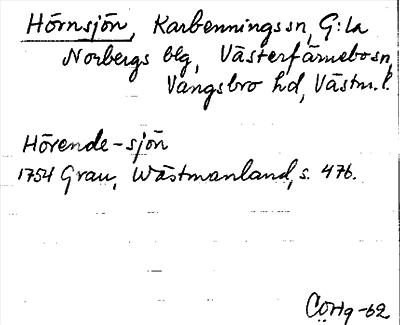 Hörnsjön, Karbennings sn, G:la
Norbergs blg, Västerfärnebo sn,
Vangsbro hd, Västm. l.
Hörende-sjön
1754 Grau, Wästmanland, s. 476.